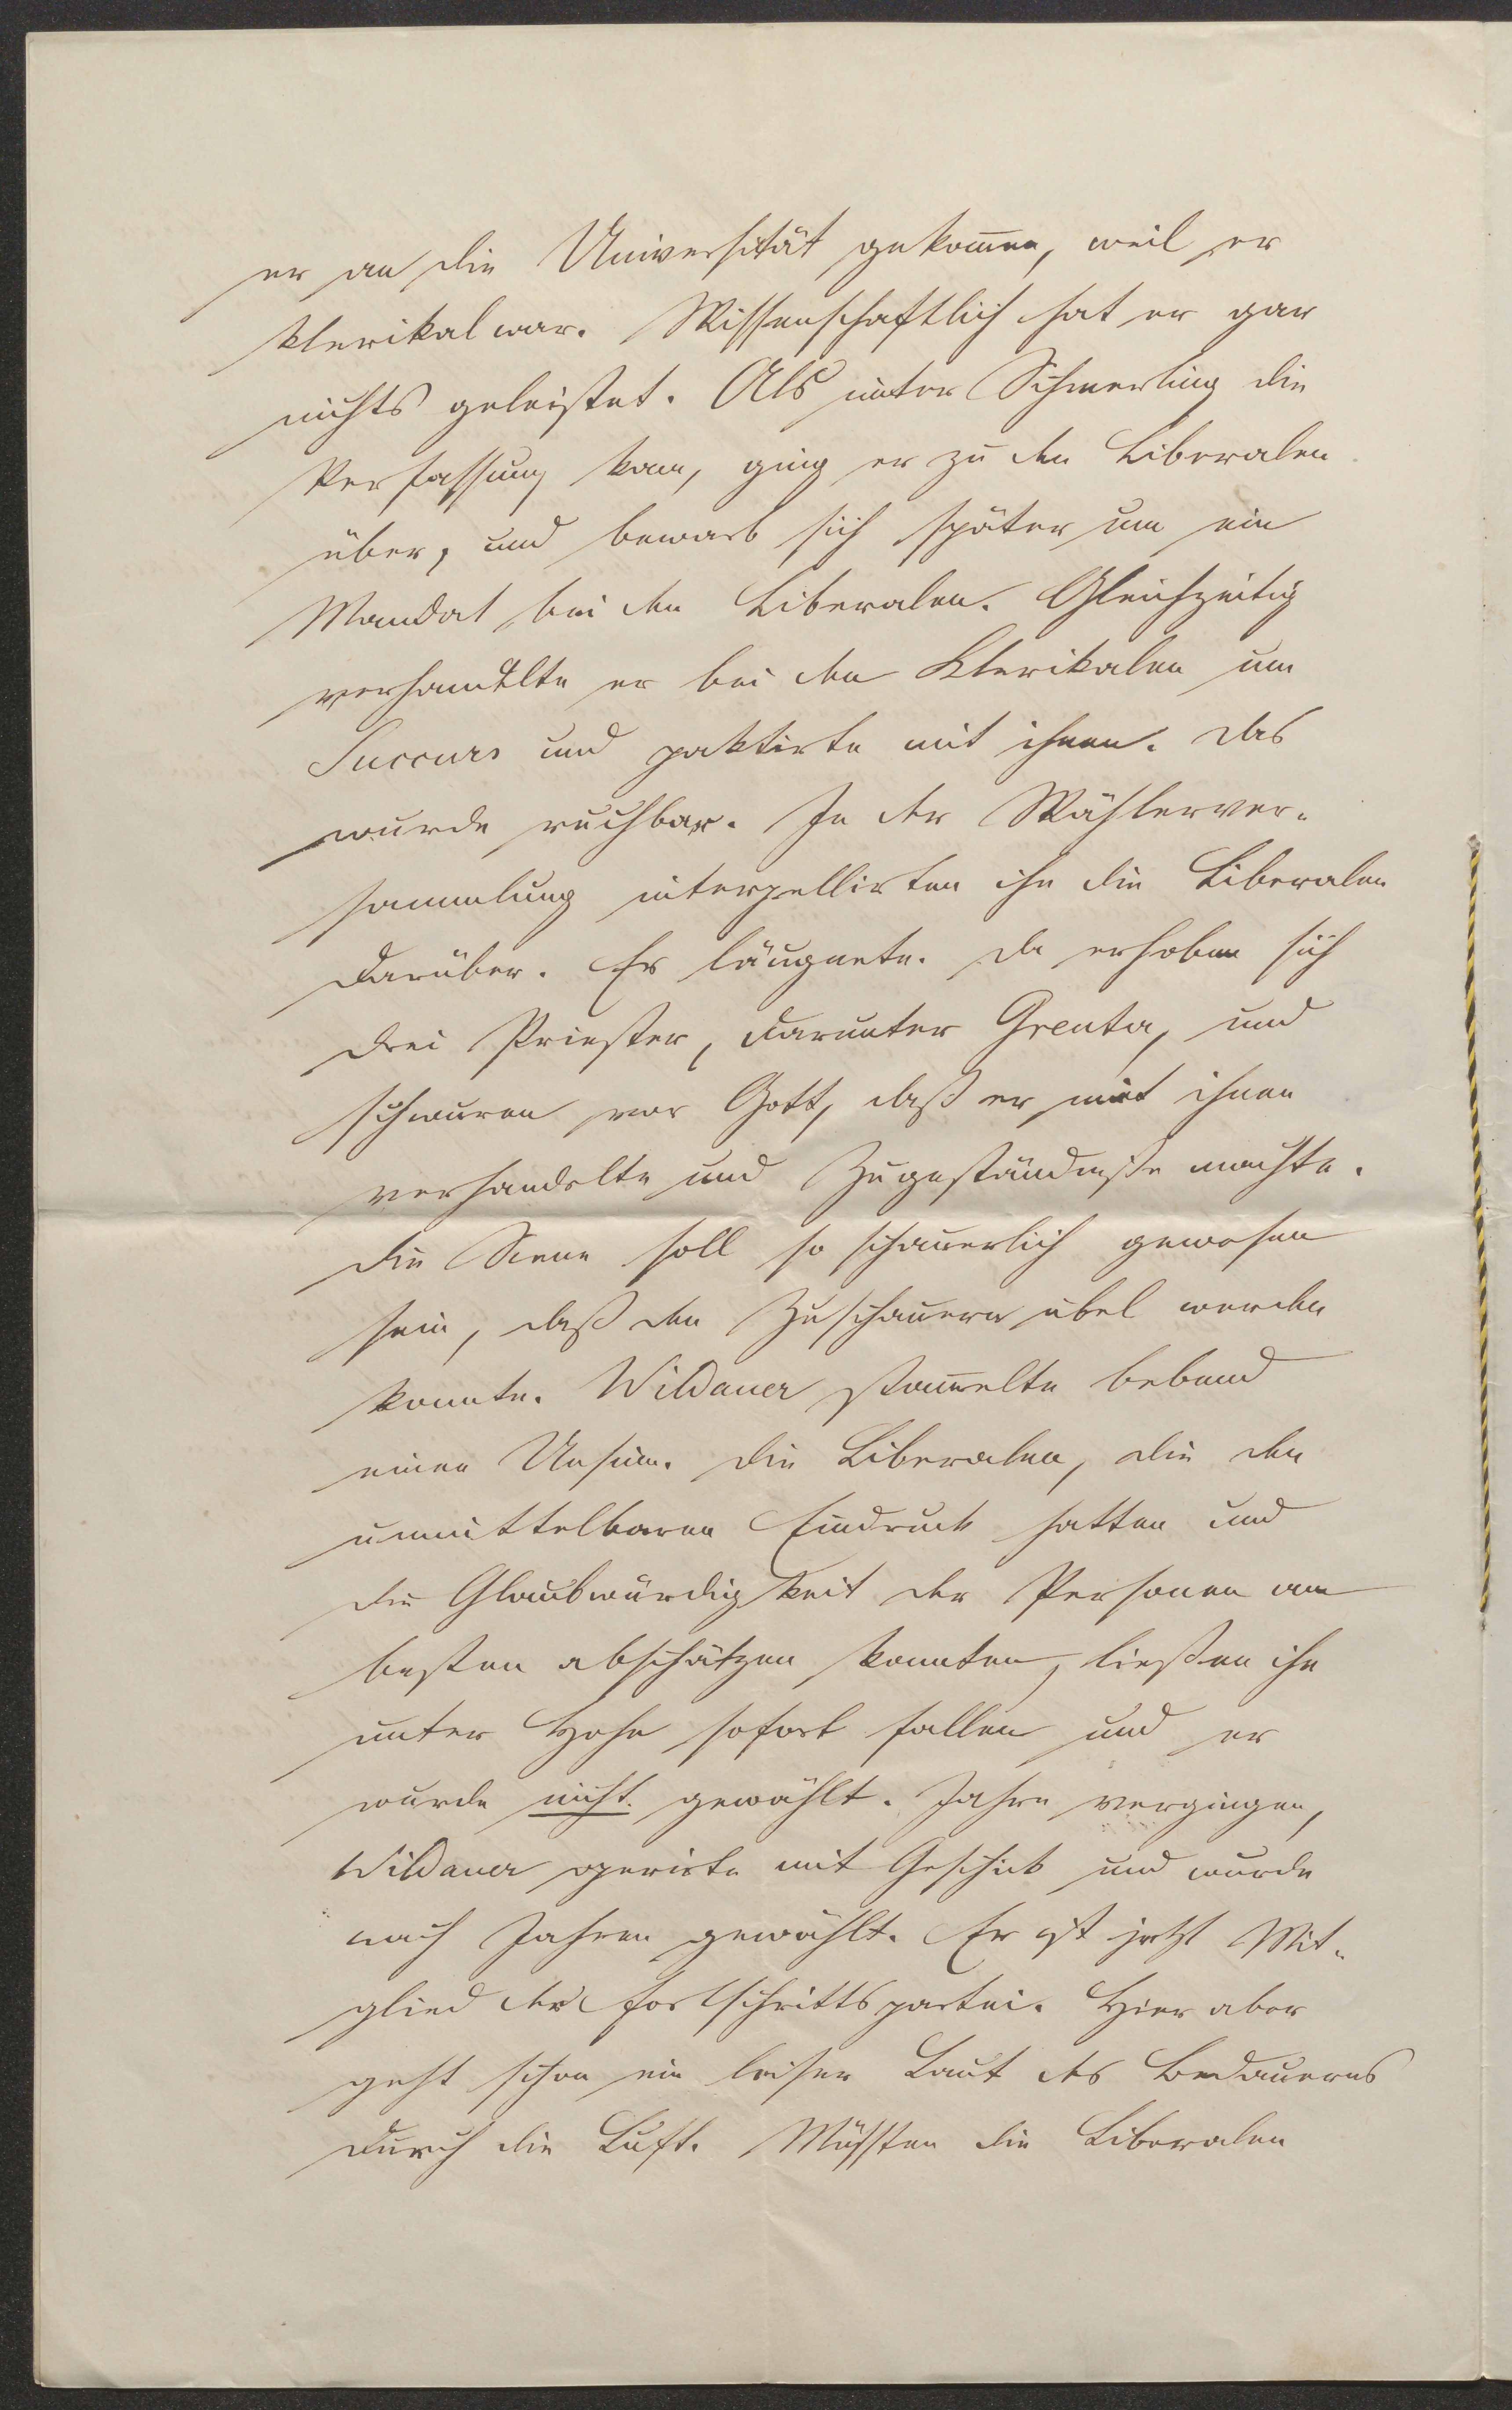 er an die Universität gekommen, weil er
klerikal war. Wissenschaftlich hat er gar
nichts geleistet. Als unter Schmerling die
Verfassung kam, ging er zu den Liberalen
über, und bewarb sich später um ein
Mandat bei den Liberalen. Gleichzeitig
verhandelte er bei den Klerikalen um
Succurs und paktirte mit ihnen. Das
wurde ruchbar. In der Wählerver-
sammlung interpellirten ihn die Liberalen
darüber. Er läugnete. Da erhoben sich
drei Priester, darunter Greuter, und
schwuren vor Gott, daß er mit ihnen
verhandelte und Zugeständniße machte.
Die Scene soll so schauerlich gewesen
sein, daß den Zuschauern übel werden
konnte. Wildauer stammelte bebend
einen Unsinn. Die Liberalen, die den
unmittelbaren Eindruck hatten und
die Glaubwürdigkeit der Personen am
besten abschätzen konnten, ließen ihn
unter Hohn sofort fallen und er
wurde nicht gewählt. Jahre vergingen,
Wildauer operirte mit Geschick und wurde
nach Jahren gewählt. Er ist jetzt Mit-
glied der Fortschrittspartei. Hier aber
geht schon ein leiser Laut des Bedauerns
durch die Luft. Müssten die Liberalen